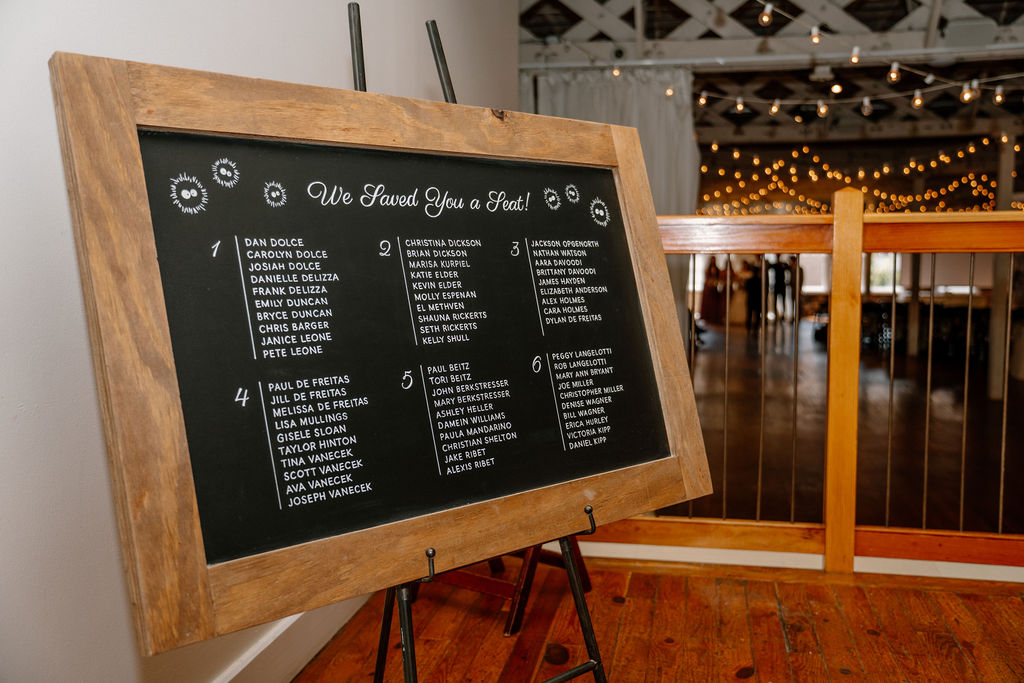 We Saved You a Seat!
1
DAN DOLCE
CAROLYN DOLCE
JOSIAH DOLCE
DANIELLE DELIZZA
FRANK DELIZZA
EMILY DUNCAN
BRYCE DUNCAN
CHRIS BARGER
JANICE LEONE
PETE LEONE
2
CHRISTINA DICKSON
BRIAN DICKSON
MARISA KURPIEL
KATIE ELDER
KEVIN ELDER
MOLLY ESPENAN
EL METHVEN
SHAUNA RICKERTS
SETH RICKERTS
KELLY SHULL
3
JACKSON OPGENORTH
NATHAN WATSON
AARA DAVOODI
BRITTANY DAVOODI
JAMES HAYDEN
ELIZABETH ANDERSON
ALEX HOLMES
CARA HOLMES
DYLAN DE FREITAS
4
PAUL DE FREITAS
JILL DE FREITAS
MELISSA DE FREITAS
LISA MULLINGS
GISELE SLOAN
TAYLOR HINTON
TINA VANECEK
SCOTT VANECEK
AVA VANECEK
JOSEPH VANECEK
5
PAUL BEITZ
TORI BEITZ
JOHN BERKSTRESSER
MARY BERKSTRESSER
ASHLEY HELLER
DAMEIN WILLIAMS
PAULA MANDARINO
CHRISTIAN SHELTON
JAKE RIBET
ALEXIS RIBET
6
PEGGY LANGELOTTI
ROB LANGELOTTI
MARY ANN BRYANT
JOE MILLER
CHRISTOPHER MILLER
DENISE WAGNER
BILL WAGNER
ERICA HURLEY
VICTORIA KIPP
DANIEL KIPP